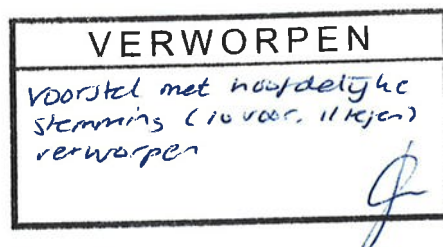 VERWORPEN
voorstel met hoofdelijke
stemming (10 voor, 11 tegen)
verworpen